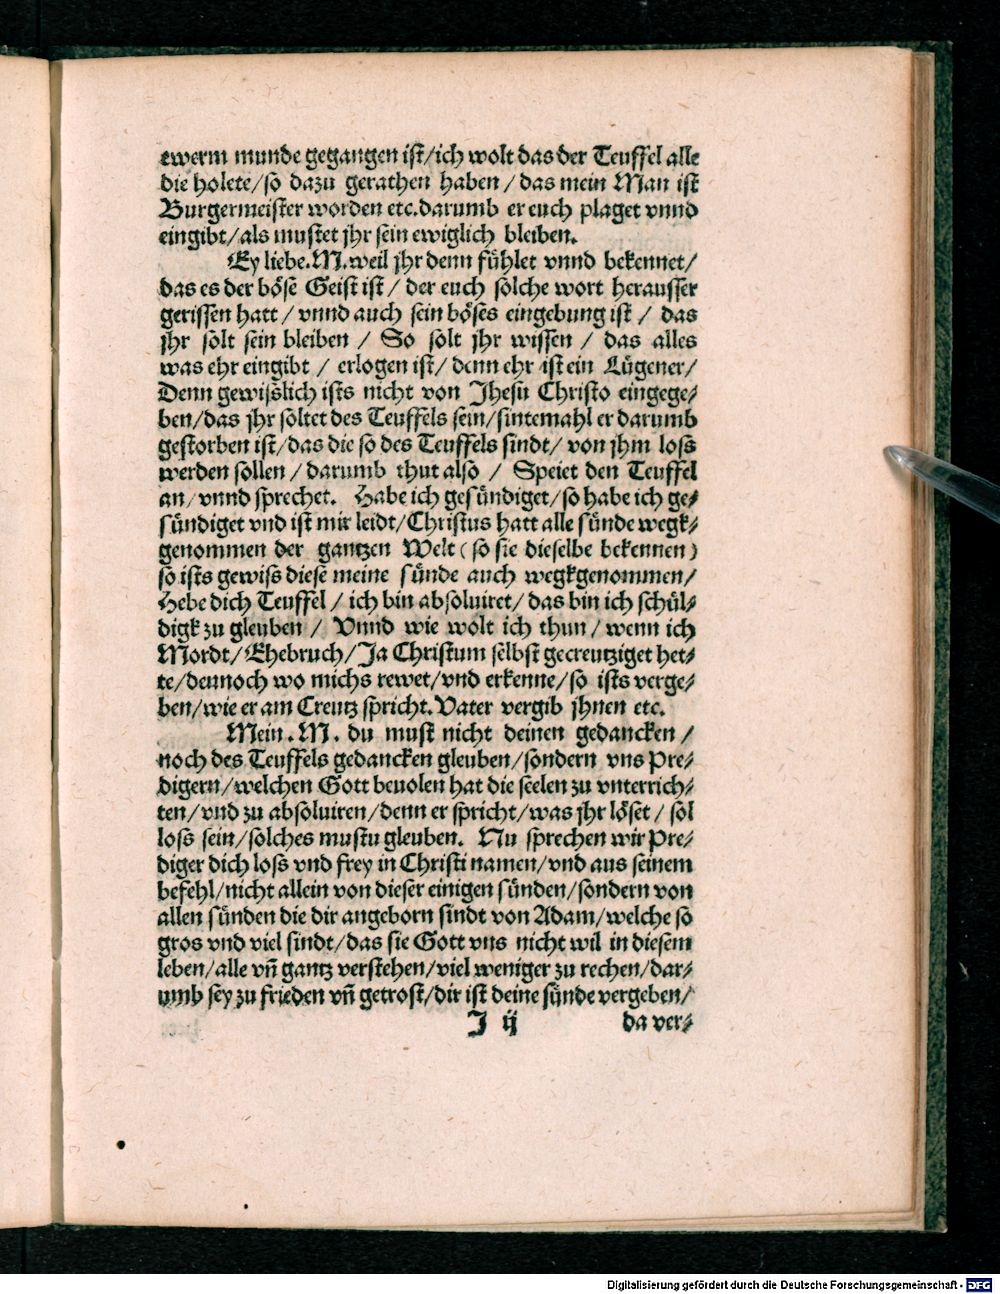 ewerm munde gegangen ist/ich wolt das der Teuffel alle
die holete/so dazu gerathen haben / das mein Man ist
Burgermeister worden etc. darumb er euch plaget vnnd
eingibt/als mustet jhr sein ewiglich bleiben.
Ey liebe. M. weil jhr denn fühlet vnnd bekennet/
das es der böse Geist ist / der euch solche wort herausser
gerissen hatt / vnnd auch sein böses eingebung ist / das
jhr solt sein bleiben / So solt jhr wissen / das alles
was ehr eingibt / erlogen ist/ denn ehr ist ein Lügener/
Denn gewißlich ists nicht von Jhesu Christo eingege⸗
ben/das jhr soltet des Teuffels sein/sintemahl er darumb
gestorben ist/das die so des Teuffels sindt/ von jhm loss
werden sollen / darumb thut also / Speiet den Teuffel
an/ vnnd sprechet. Habe ich gesündiget/so habe ich ge⸗
sündiget vnd ist mir leidt/Christus hatt alle sünde wegk⸗
genommen der gantzen Welt ( so sie dieselbe bekennen )
so ists gewiss diese meine sünde auch wegkgenommen/
Hebe dich Teuffel / ich bin absoluiret/ das bin ich schül⸗
digk zu gleuben / Vnnd wie wolt ich thun / wenn ich
Mordt/Ehebruch/Ja Christum selbst gecreutziget het⸗
te/dennoch wo michs rewet/vnd erkenne/so ists verge⸗
ben/wie er am Creutz spricht. Vater vergib jhnen etc.
Mein. M. du must nicht deinen gedancken /
noch des Teuffels gedancken gleuben/sondern vns Pre⸗
digern/welchen Gott beuolen hat die seelen zu vnterrich⸗
ten/vnd zu absoluiren/denn er spricht/was jhr löset / sol
loss sein/solches mustu gleuben. Nu sprechen wir Pre⸗
diger dich loss vnd frey in Christi namen/vnd aus seinem
befehl/nicht allein von dieser einigen sünden/sondern von
allen sünden die dir angeborn sindt von Adam/welche so
gros vnd viel sindt/das sie Gott vns nicht wil in diesem
leben/alle vñ gantz verstehen/viel weniger zu rechen/dar⸗
umb sey zu frieden vñ getrost/dir ist deine sünde vergeben/
J ij da ver⸗
Digitalisierung gefördert durch die Deutsche Forschungsgemeinschaft - DFG